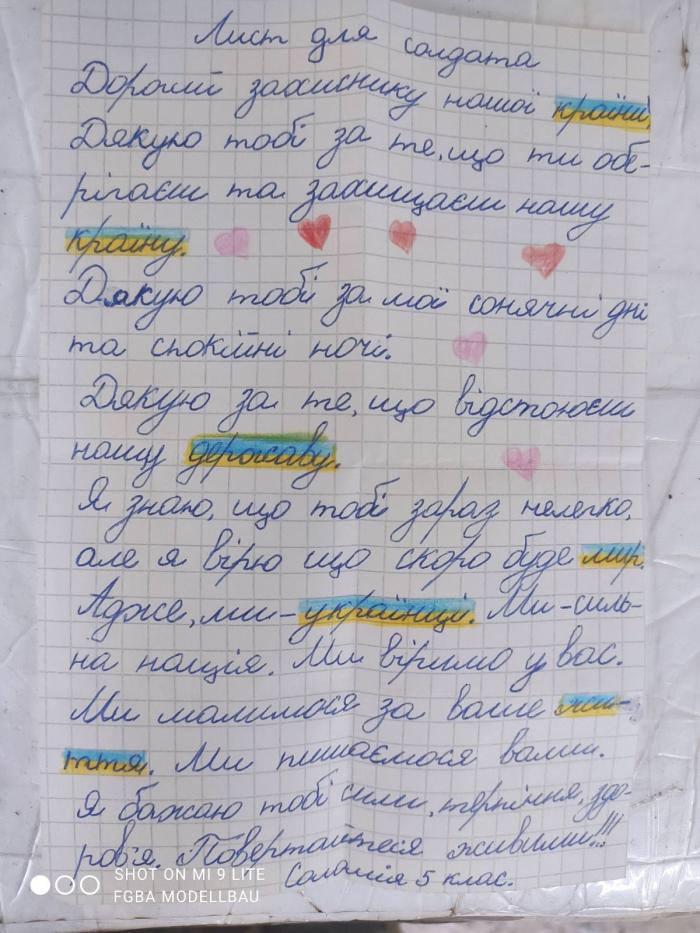 Лист для солдата
Дорогий захиснику нашої країни,
Дякую тобі за те, що ти обе-
рігаєш та захищаєш нашу
країну.
Дякую тобі за мої сонячні дні
та спокійні ночі.
Дякую за те, що відстоюєш
нашу державу.
Я знаю, що тобі зараз нелегко,
але я вірю що скоро буде мир.
Адже, ми - українці. Ми - силь-
на нація. Ми віримо у вас.
Ми молимося за ваше жи-
ття. Ми пишаємося вами.
Я бажаю тобі сили, терпіння, здо-
ров'я. Повертайтеся живими!!!
Соломія 5 клас.
SHOT ON MI 9 LITE
FGBA MODELLBAU